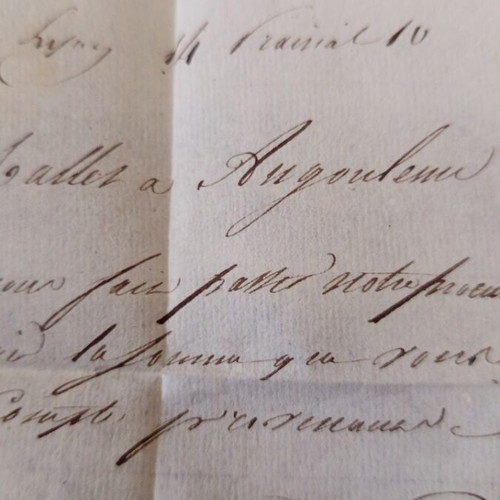 Lyon 14 Prairial 10
Callet a Angouleme
vous fait passer notre procu
la somme que vous
Compte